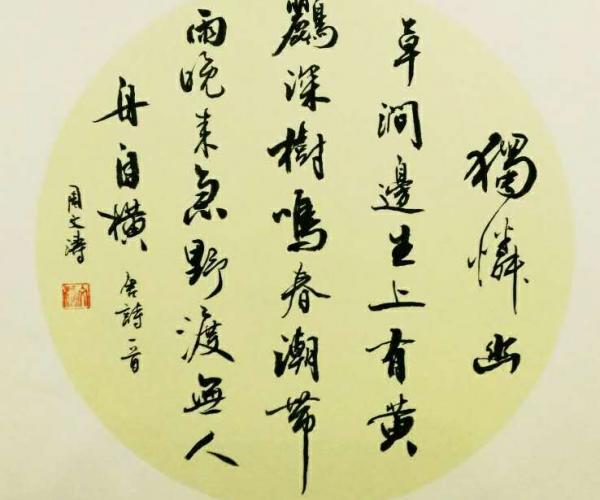 獨憐幽
草澗邊生上有黃
鸝深樹鳴春潮帶
雨晚來急野渡無人
舟自橫
唐詩一首
周文濤